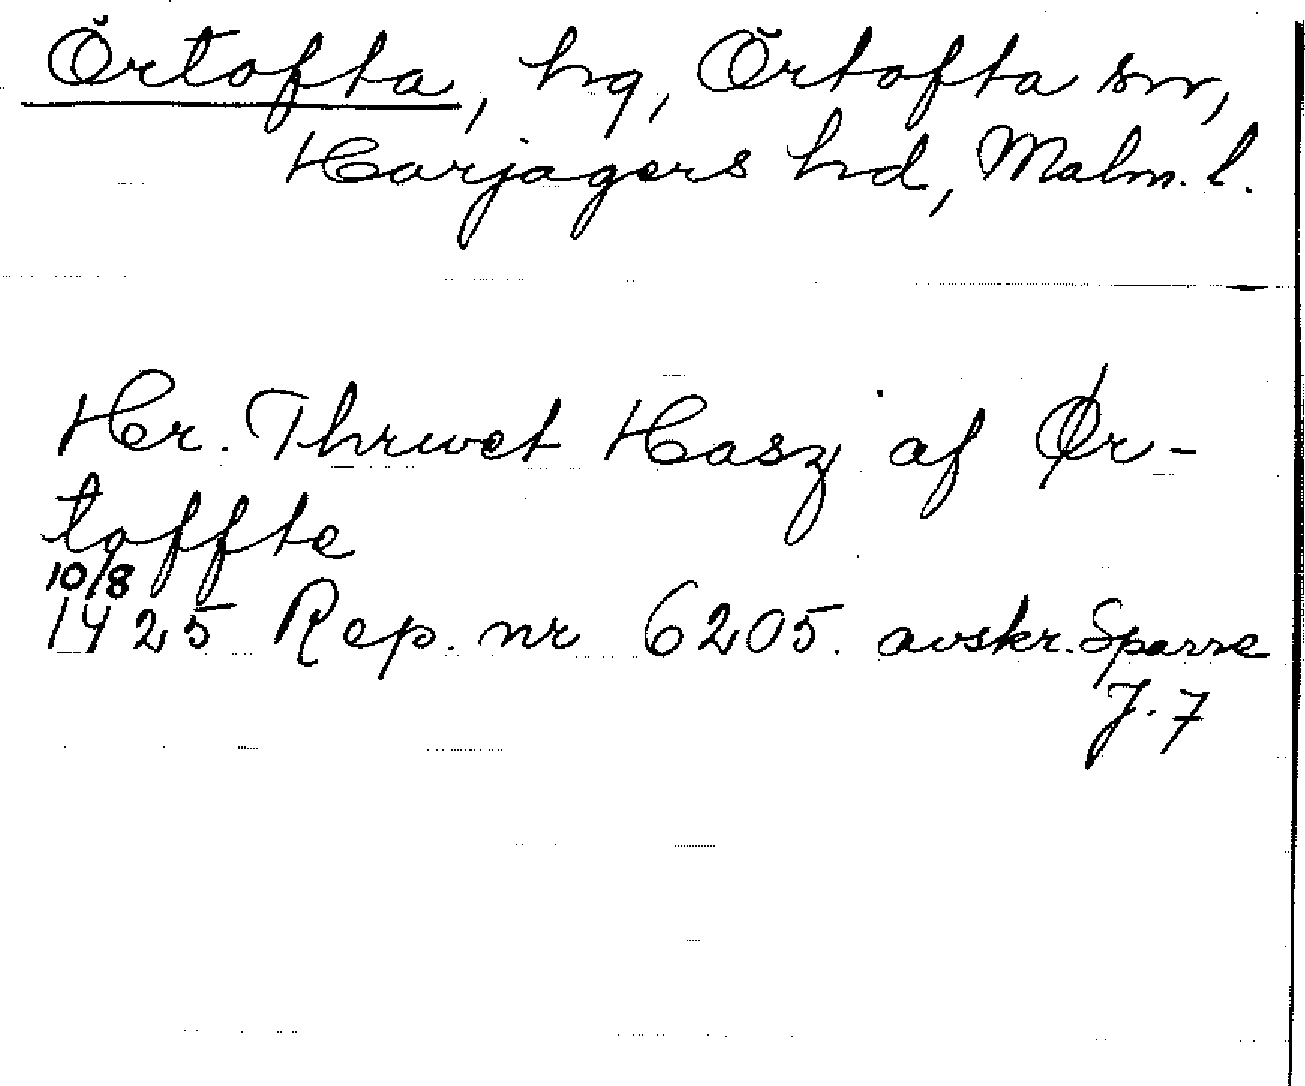 Örtofta, hg, Örtofta sn,
Harjagers hd, Malm. l.
Hr. Thruvet Hasz af Ør-
toffte
10/8
1425 Rep. nr 6205. avskr. Sparre
J. 7